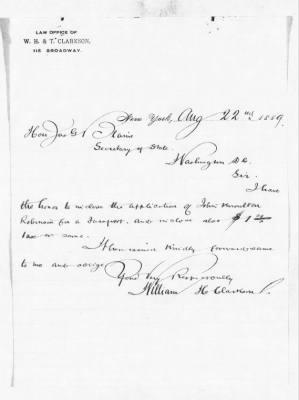 LAW OFFICE OF
W. H. & T. CLARKSON,
115 BROADWAY.
New York, Aug 22nd, 1889.
Hon Jas G Blaine
Secretary of State.
Washington D.C.
Sir
I have
the honor to inclose the application of John
Robinson for a Passport. and inclose also $1
tax on same.
kindly forward same
to me and oblige
Yours Very Respectfully
William H. Clarkson